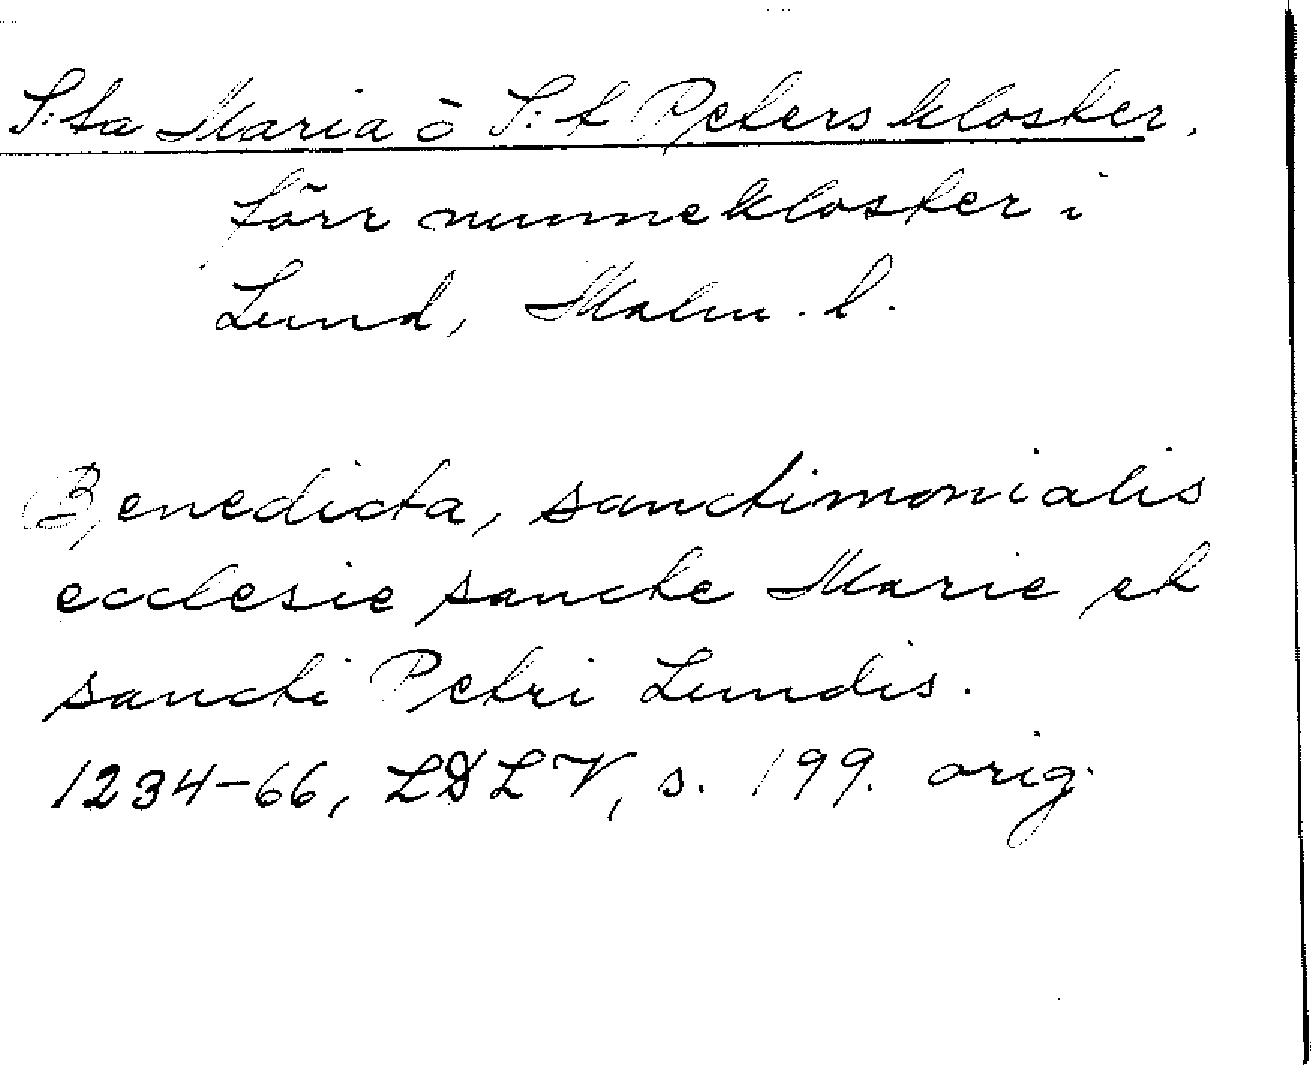 S:ta Maria o S:t Peters kloster,
förr nunnekloster i
Lund, Malm. l.
Benedicta, sanctimonialis
ecclesie sancte Marie et
sancti Petri Lundis.
1234-66, LDLV, s. 199. orig.